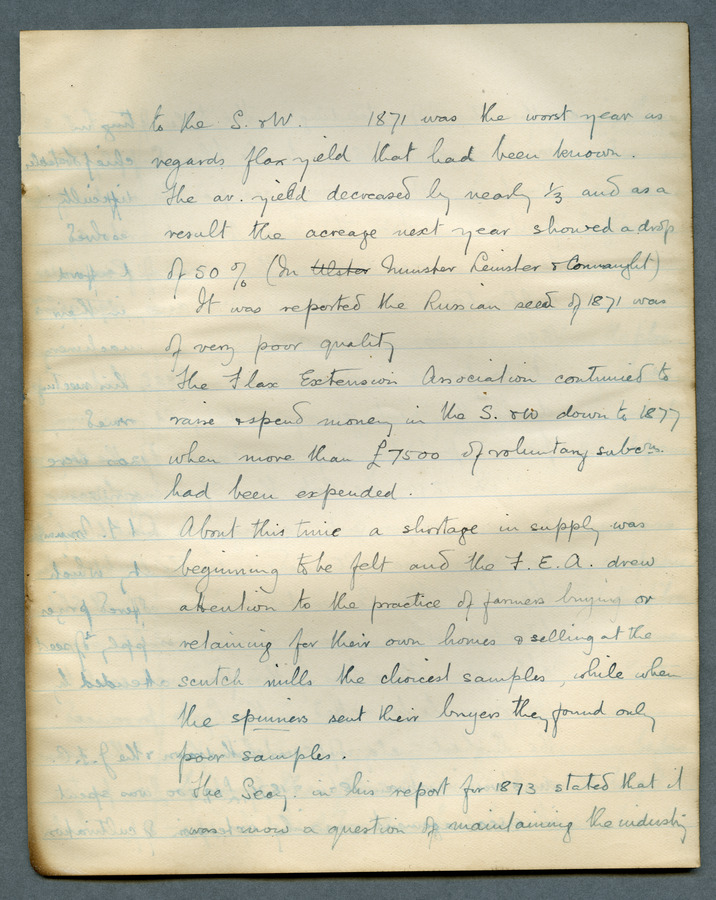 to the S. & W. 1871 was the worst year as
regards flax yield that had been known.
The av. yield decreased by nearly 1/3 and as a
result the acreage next year showed a drop
of 50 % (In Ulster Munster Leinster & Connaught)
It was reported the Russian seed of 1871 was
of very poor quality
The Flax Extension Association continued to
raise & spend money in the S. & W down to 1877
when more than £7500 of voluntary subcns.
had been expended.
About this time a shortage in supply was
beginning to be felt and the F. E. A. drew
attention to the practice of farmers buying or
retaining for their own homes & selling at the
scutch mills the choicest samples, while when
the spinners sent their buyers they found only
poor samples.
The Secy. in his report for 1873 stated that it
was now a question of maintaining the industry